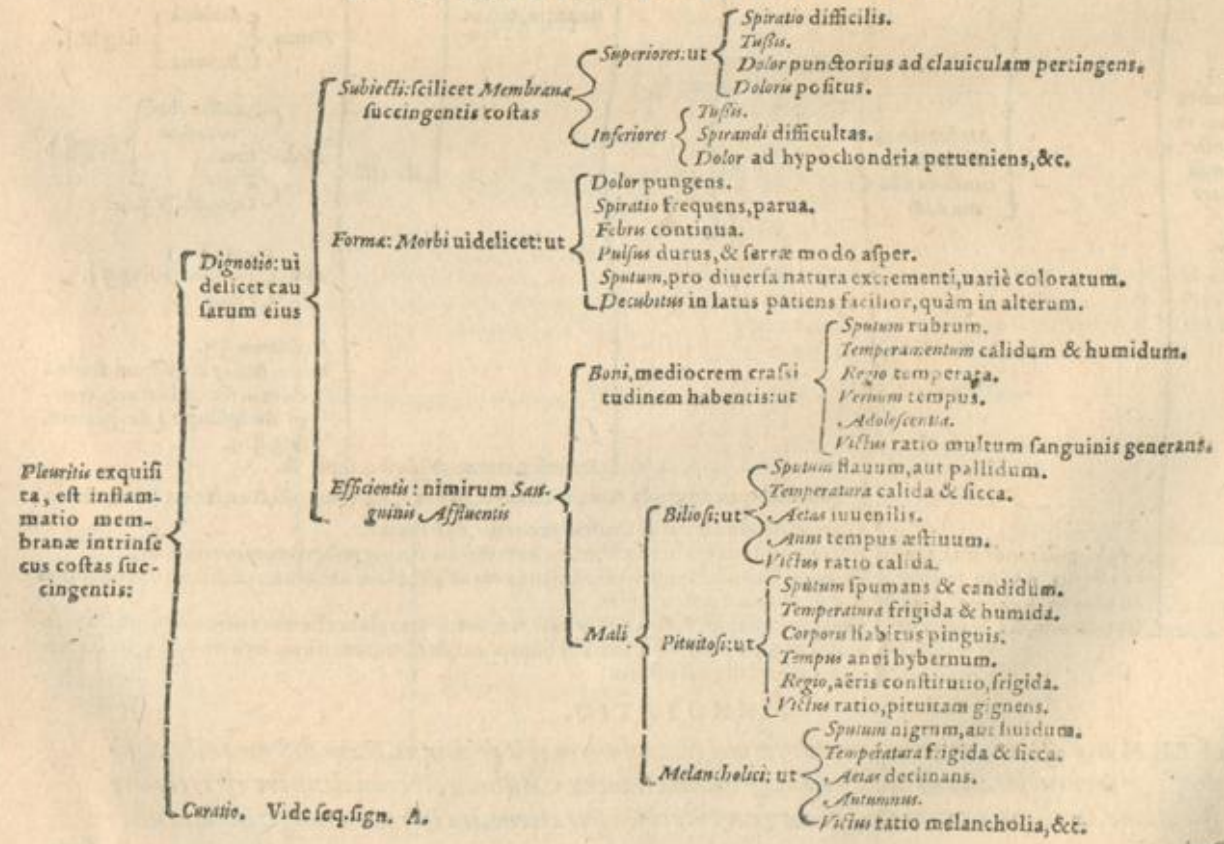 Pleuritis exquisi
ta, est inflam-
matio mem-
branæ intrinse
cus costas suc-
cingentis:
Dignotio: ui
delicet cau
sarum eius
Subiecti: scilicet Membranæ
succingentis costas
Superiores: ut
Spiratio difficilis.
Tußis.
Dolor punctorius ad clauiculam pertingens.
Doloris positus.
Inferiores
Tußis.
Spirandi difficultas.
Dolor ad hypochondria perueniens, &c.
Formæ: Morbi uidelicet: ut
Dolor pungens.
Spiratio frequens, parua.
Febris continua.
Pulsus durus, & serræ modo asper.
Sputum, pro diuersa natura excrementi, uariè coloratum.
Decubitus in latus patiens facilior, quàm in alterum.
Efficientis: nimirum San-
guinis Affluentis
Boni, mediocrem crassi
tudinem habentis: ut
Sputum rubrum.
Temperamentum calidum & humidum.
Regio temperata.
Vernum tempus.
Adolescentia.
Victus ratio multum sanguinis generans.
Mali
Biliosi: ut
Sputum flauum, aut pallidum.
Temperatura calida & sicca.
Aetas iuuenilis.
Anni tempus æstiuum.
Victus ratio calida.
Pituitosi: ut
Sputum spumans & candidum.
Temperatura frigida & humida.
Corporis habitus pinguis.
Tempus anni hybernum.
Regio, aëris constitutio, frigida.
Victus ratio, pituitam gignens.
Melancholici: ut
Sputum nigrum, aut liuidum.
Temperatura frigida & sicca.
Aetas declinans.
Autumnus.
Victus ratio melancholia, &c.
Curatio. Vide seq. sign. A.